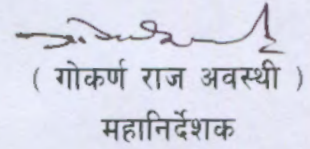 ( गोकर्ण राज अवस्थी )
महानिर्देशक